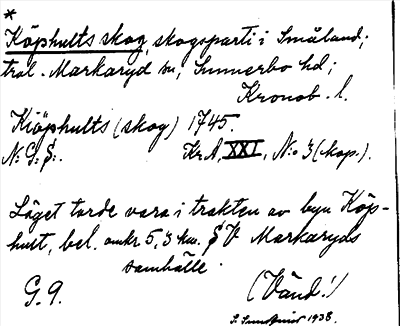 *
Köphults skog, skogsparti i Småland;
trol. Markaryd sn, Sunnerbo hd;
Kronob. l.
Kiöphults (skog) 1745.
N: G: S:. Kr. A, XXI, N:o 3 (kop.).
Läget torde vara i trakten av byn Köp-
hult, bel. omkr 5,3 km. SV Markaryds
samhälle.
G. 9. (Vänd!)
1938.